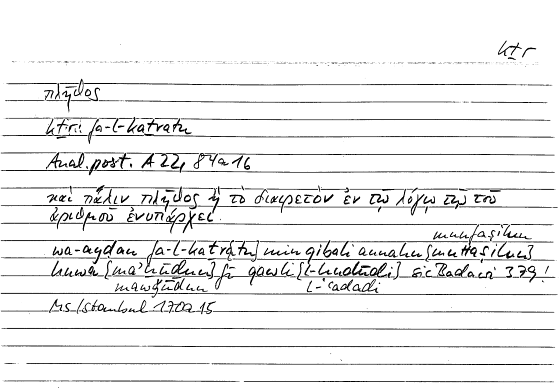 kṯr
πλῆθος
kṯr: fa-l-kaṯratu
Anal. post. A 22, 84a16
καὶ πάλιν πλῆθος ἢ τὸ διαιρετὸν ἐν τῷ λόγῳ τῷ τοῦ
ἀριθμοῦ ἐνυπάρχει.
munfaṣilun
wa-ayḍan fa-l-kaṯratu} min qibali annahu {muttaṣilun}
huwa {ma'ḫūḏun} fī qawli {l-ḥudūdi} sic Badawi 379!
mawǧūdun l-ʿadadi
Ms Istanbul 170a15